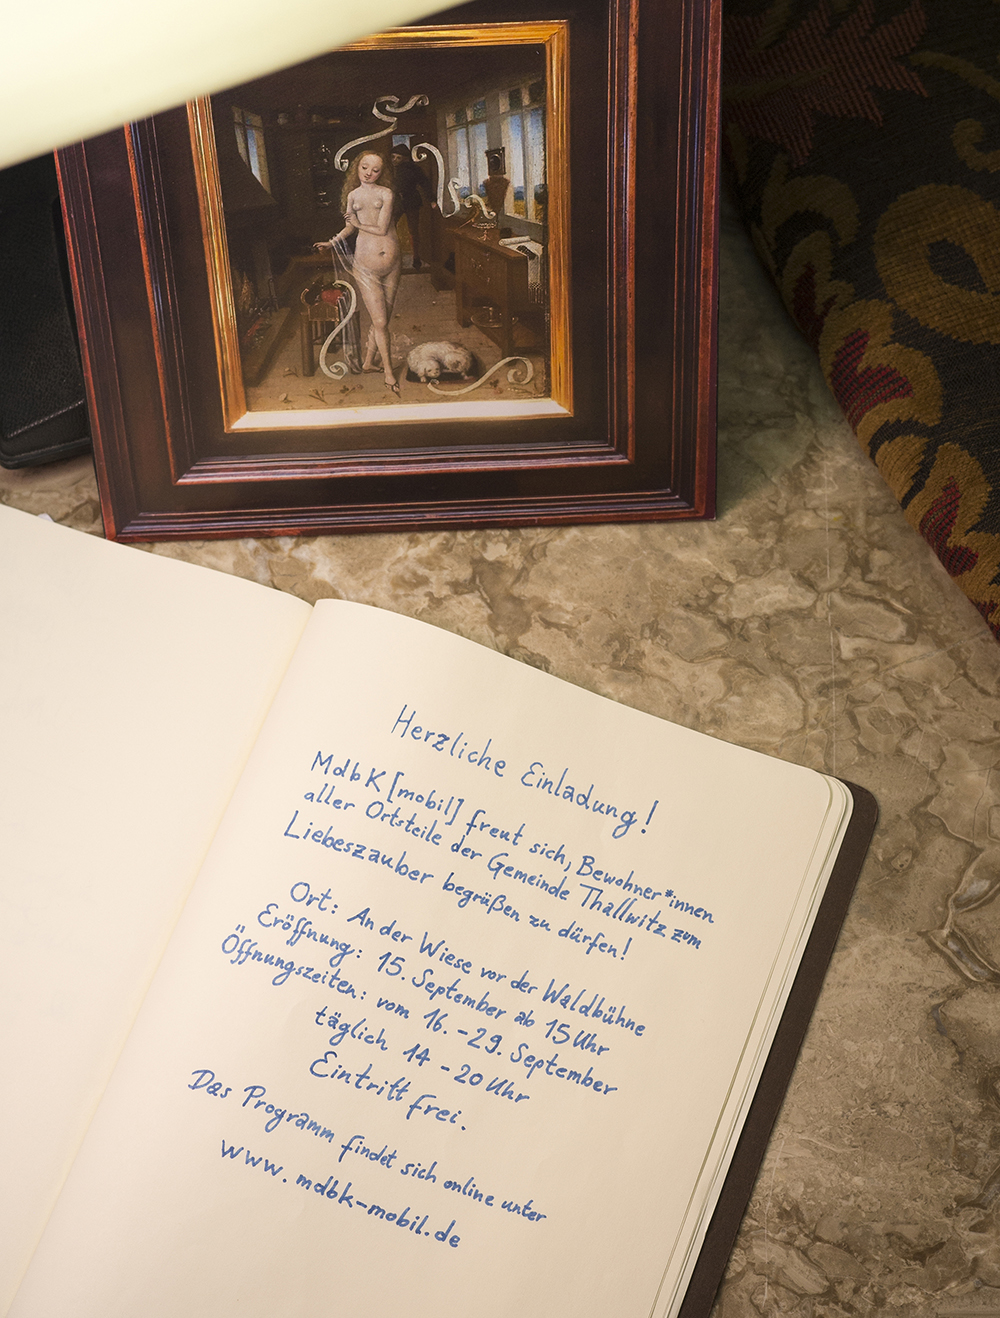 Herzliche Einladung!
MdbK [mobil] freut sich, Bewohner*innen
aller Ortsteile der Gemeinde Thallwitz zum
Liebeszauber begrüßen zu dürfen!
Ort: An der Wiese vor der Waldbühne
Eröffnung: 15. September ab 15 Uhr
Öffnungszeiten: vom 16. - 29. September
täglich 14 - 20 Uhr
Eintritt frei.
Das Programm findet sich online unter
www.mdbk-mobil.de